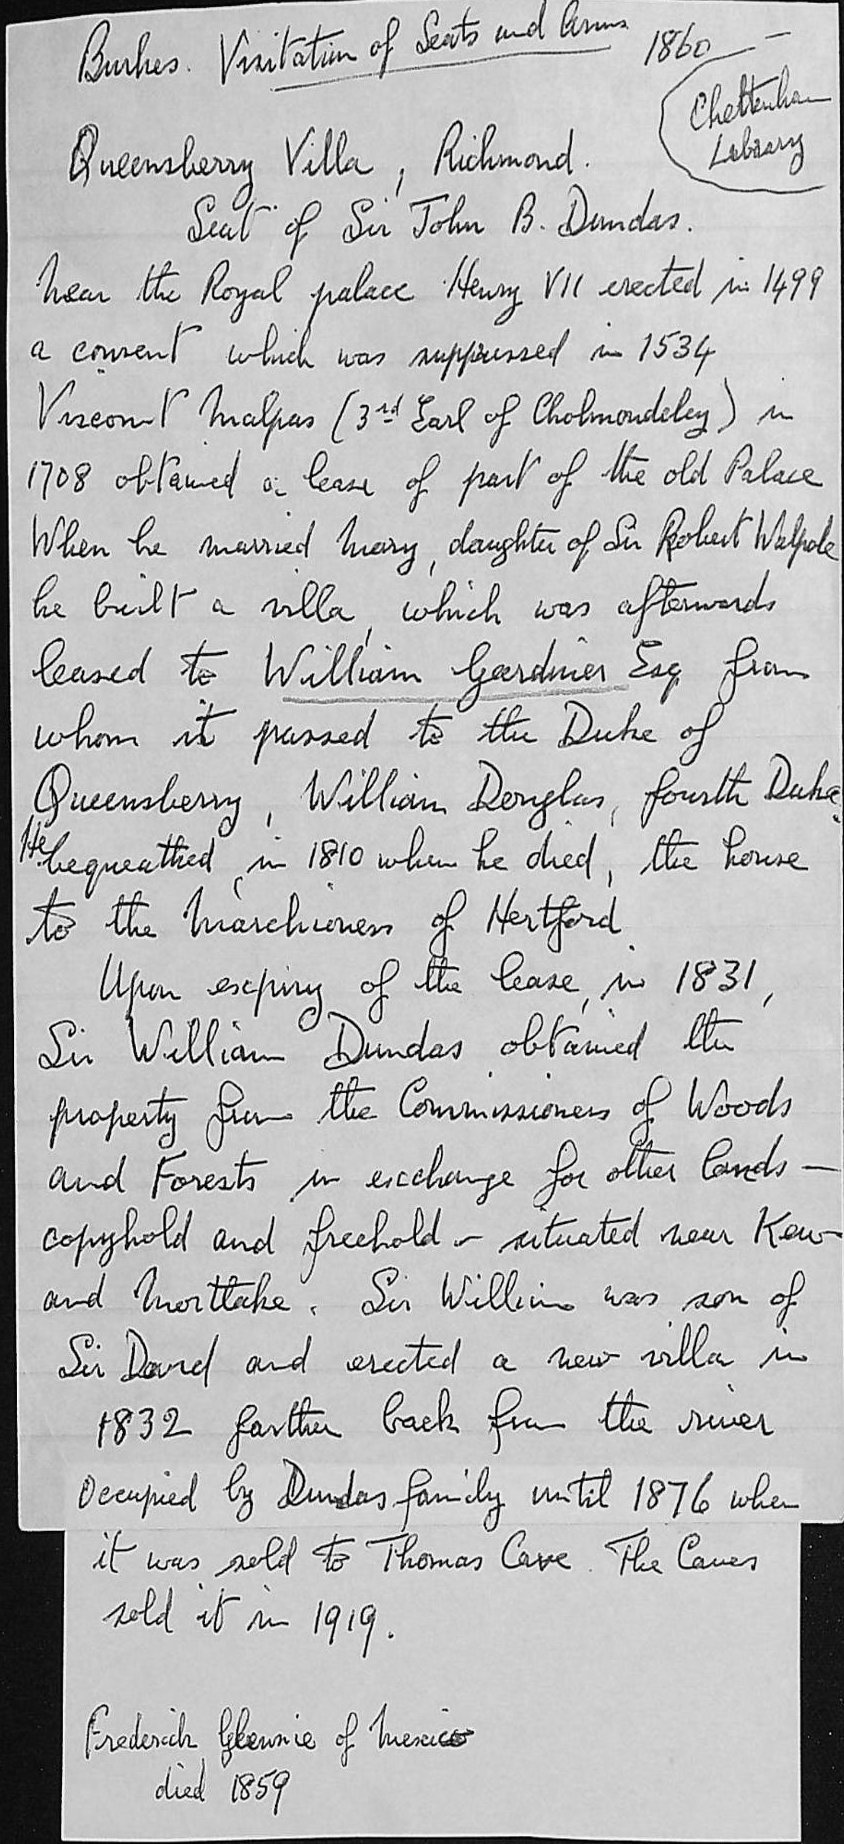 Burkes. Visitation of Seats and Arms. 1860
Cheltenham
Library
Queensberry Villa, Richmond.
Seat of Sir John B. Dundas.
Near the Royal palace Henry VII erected in 1499
a convent which was suppressed in 1534
Viscount Malpas (3rd Earl of Cholmondeley) in
1708 obtained a lease of part of the old Palace
When he married Mary, daughter of Sir Robert Walpole
he built a villa, which was afterwards
leased to William Gardiner Esq from
whom it passed to the Duke of
Queensberry, William Douglas, fourth Duke.
He bequeathed, in 1810 when he died, the house
to the Marchioness of Hertford
Upon expiry of the lease, in 1831,
Sir William Dundas obtained the
property from the Commissioners of Woods
and Forests in exchange for other lands —
copyhold and freehold - situated near Kew
and Mortlake. Sir William was son of
Sir David and erected a new villa in
1832 farther back from the river
Occupied by Dundas family until 1876 when
it was sold to Thomas Cave. The Caves
sold it in 1919.
Frederick Glennie of Mexico
died 1859